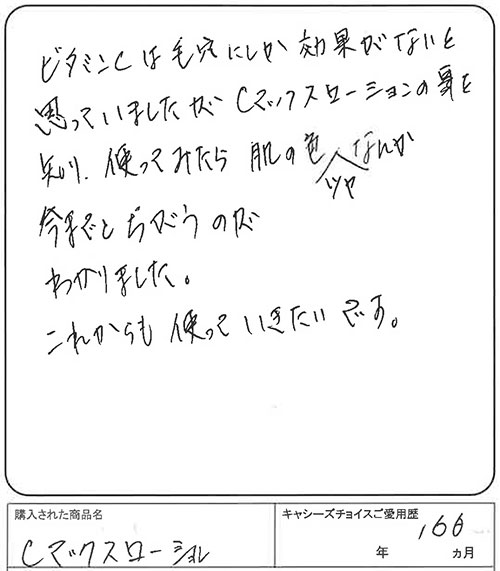 ビタミンCは毛穴にしか効果がないと
思っていましたが Cマックスローションの事を
知り、使ってみたら 肌の色 なんか
ツヤ
今までとちがうのが
わかりました。
これからも使っていきたいです。
購入された商品名
キャシーズチョイスご愛用歴
Cマックスローション
年 ヵ月